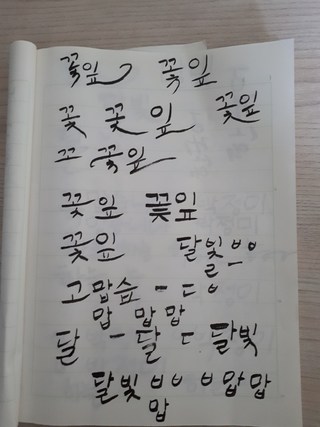 꽃잎 꽃잎
꽃잎
꽃 꽃 잎
꼬 꽃잎
꽃잎 꽃잎
꽃잎 달빛 ㅂㅇ
ㄹ ㅡ
고맙습 ㅡ ㄷㅇ
맙 맙맙
달 ㅡ 달 ㄷ 달빛
달빛 ㅂㅂ ㅂ 압맙
맙